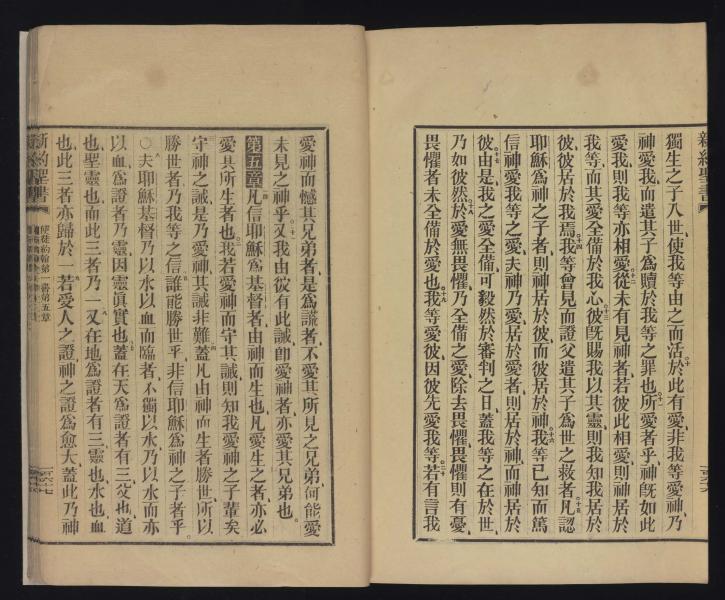 獨生之子入世、使我等由之而活、於此有愛、非我等愛神、乃
神愛我、而遣其子爲贖於我等之罪也、所愛者乎、神旣如此
愛我、則我等亦相愛、從未有見神者、若彼此相愛、則神居於
我等、而其愛全備於我心、彼旣賜我以其靈、則我知我居於
彼、彼居於我焉、我等曾見而證父遣其子爲世之救者、凡認
耶穌爲神之子者、則神居於彼、而彼居於神、我等已知而篤
信神愛我等之愛、夫神乃愛、居於愛者、則居於神、而神居於
彼、由是我之愛全備、可毅然於審判之日、蓋我等之在於世、
乃如彼然、於愛無畏懼、乃全備之愛、除去畏懼、畏懼則有憂、
畏懼者未全備於愛也、我等愛彼、因彼先愛我等、若有言我
新約聖書
愛神而憾其兄弟者、是爲謊者、不愛其所見之兄弟、何能愛
未見之神乎、又我由彼有此誡、卽愛神者亦愛其兄弟也。
第五章 凡信耶穌爲基督者、由神而生也、凡愛生之者、亦必
愛其所生者也、我若愛神而守其誡、則知我愛神之子輩矣、
守神之誡、是乃愛神、其誡非難、蓋凡由神而生者勝世、所以
勝世者、乃我等之信、誰能勝世乎、非信耶穌爲神之子者乎。
○夫耶穌基督乃以水以血而臨者、不獨以水、乃以水而亦
以血、爲證者乃靈、因靈眞實也、蓋在天爲證者有三、父也、道
也、聖靈也、而此三者乃一、又在地爲證者有三、靈也、水也、血
也、此三者亦歸於一、若愛人之證、神之證爲愈大、蓋此乃神
新約聖書 使徒約翰第一書第五章